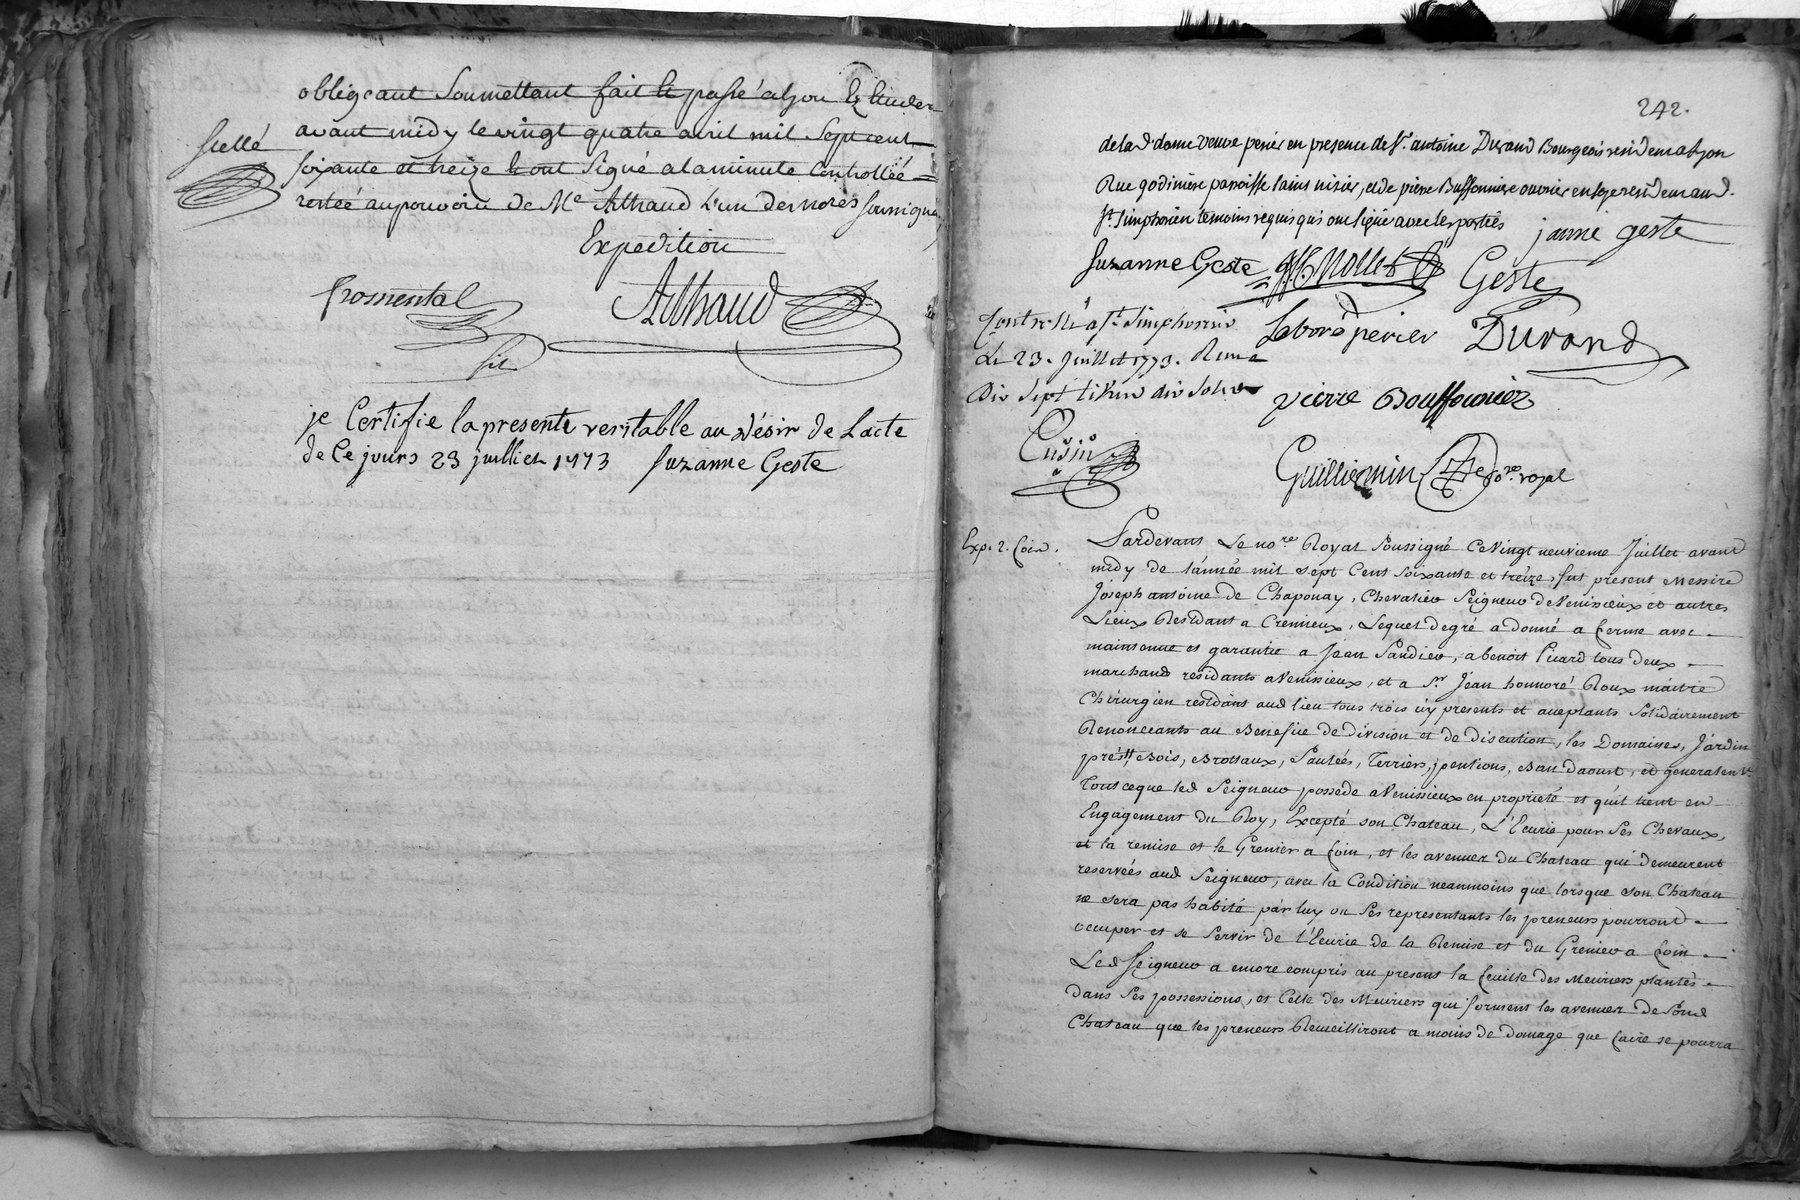 obligeant Soumettant fait et passé a Lyon Ez Etudes
avant midy le vingt quatre avril mil Sept cent
Scellé
soixante et treize et ont Signé a la minute Controllée
restée au pouvoir de Me Althaud L'un des nores soussignés
Expedition
fromental
Althaud
je Certifie la presente veritable au désir de Lacte
de Ce jours 23 juillien 1773 Suzanne Geste
242.
de lad dame veuve perier en presence de Sr. antoine Durand Bourgeois residem a Lyon
Rue godiniere paroisse saint nizier, et de pierre Buffonniere ouvrier en soye residem aud.
St. simphorien temoins requis qui ont signé avec les parties
janne geste
Suzanne Geste
Mollet
Geste
Controllé a St. Simphorien
Le 23. Juillet 1773. Reçu
Dix Sept Livres dix Sols
Labory perier
Durand
pierre Bouffonnier
Cusin
Guilliermin
nore. royal
Exp. 2. foix.
Pardevant Le nore Royal Soussigné Ce Vingt neuvieme Juillet avant
midy de L'année mil sept Cent soixante et treize, fut present Messire
Joseph antoine de Chaponay, Chevalier Seigneur de Venissieux et autres
Lieux Residant a Cremieux, Lequel de gré a donné a ferme avec
maintenue et garantie a Jean Sandier, a benoit Picard tous deux
marchands residants a Venissieux, et a Sr. Jean honnoré Roux maitre
Chirurgien residant aud lieu tous trois icy presents et aceptants Solidairement
Renonceants au Benefice de division et de discution, les Domaines, Jardin
prés, Bois, Brotteaux, Saulées, Terriers, pentions, Ban daoust, et generalemt
Tout ce que led Seigneur possede a Venissieux en propriété et qu'il tient en
Engagement du Roy, Excepté son Chateau, L'Ecurie pour Ses Chevaux,
et la remise et le Grenier a foin, et les avenues du Chateau qui demeurent
reservées aud Seigneur, avec la Condition neanmoins que lorsque son Chateau
ne sera pas habité par luy ou Ses representants les preneurs pourront
occuper et se Servir de L'Ecurie de la Remise et du Grenier a foin
Led Seigneur a encore compris au present la feuille des Meuriers plantés
dans Ses possessions, et Celle des Muriers qui forment les avenues de Sond
Chateau que les preneurs Recueilliront a moins de domage que faire se pourra